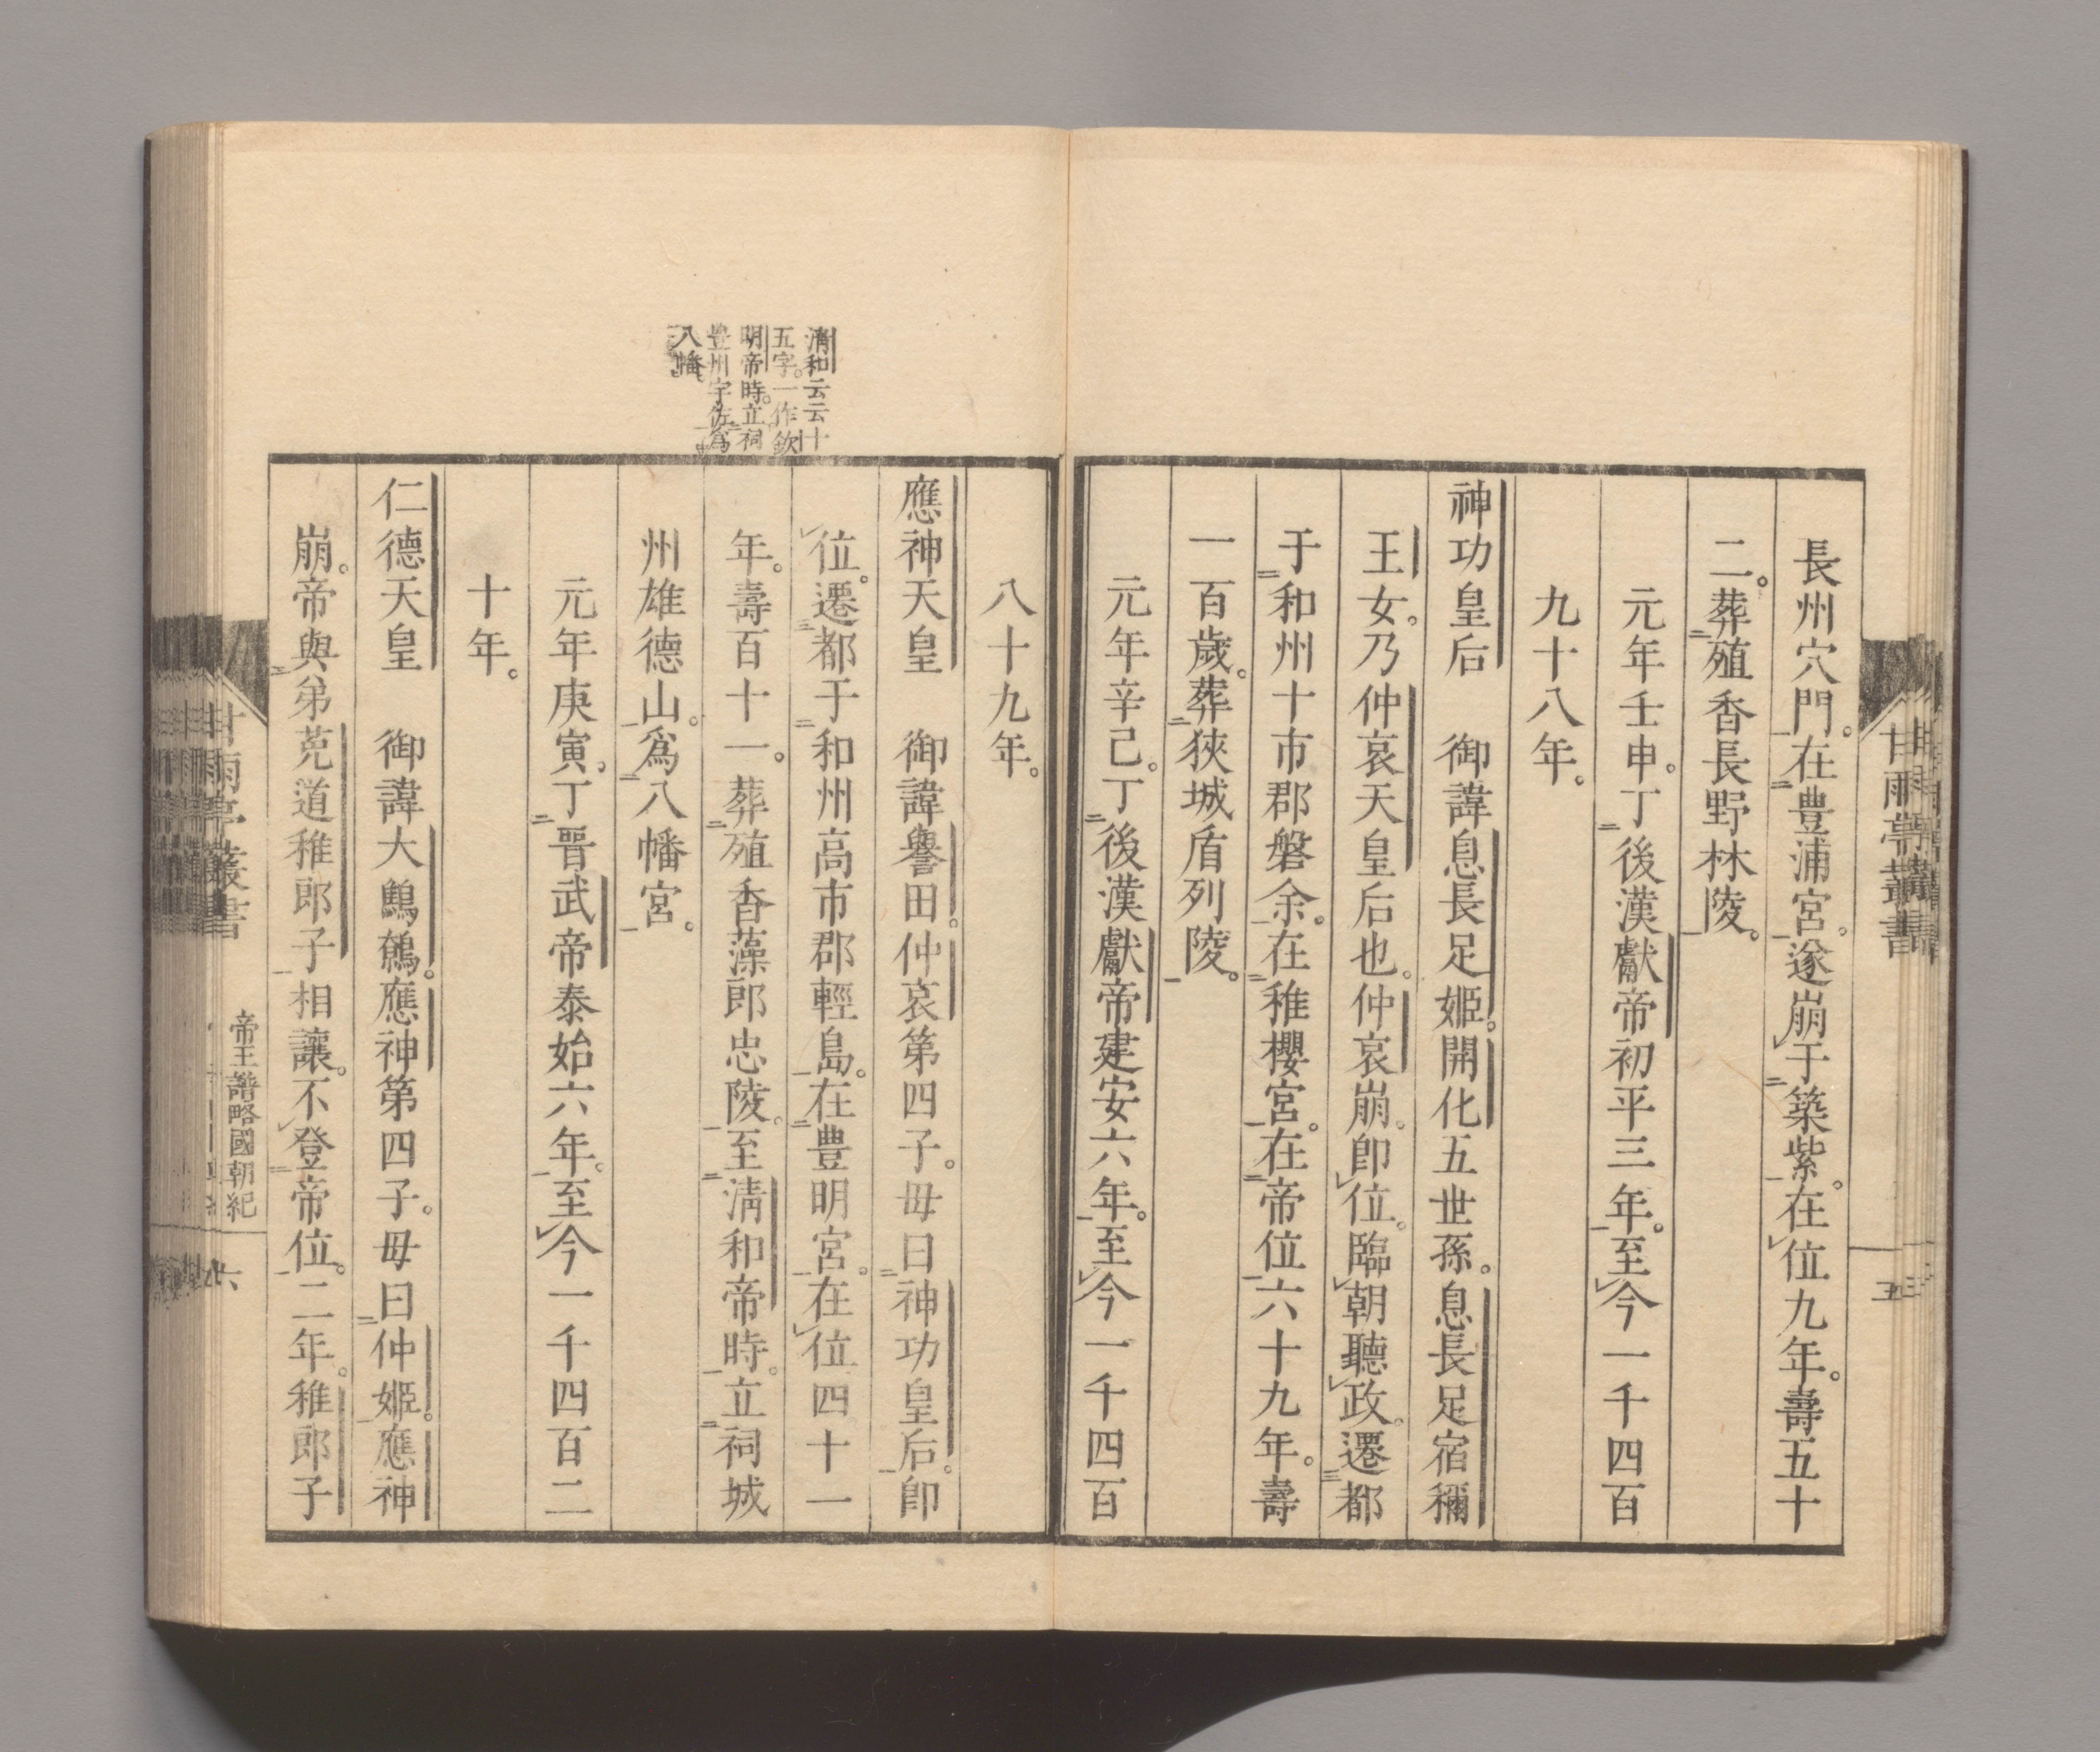 長州穴門。在豊浦宮。遂崩于築紫。在位九年。壽五十
二。葬殖香長野林陵。
元年壬申。丁後漢獻帝初平三年。至今一千四百
九十八年。
神功皇后　御諱息長足姫。開化五世孫。息長足宿禰
王女。乃仲哀天皇后也。仲哀崩。即位。臨朝聽政。遷都
于和州十市郡磐余。在稚櫻宮。在帝位六十九年。壽
一百歲。葬狹城盾列陵。
元年辛己。丁後漢獻帝建安六年。至今一千四百
甘雨亭叢書
五
八十九年。
應神天皇　御諱譽田。仲哀第四子。母曰神功皇后。即
位。遷都于和州高市郡輕島。在豊明宮。在位四十一
年。壽百十一。葬殖香藻郎忠陵。至淸和帝時。立祠城
州雄德山。爲八幡宮。
元年庚寅。丁晋武帝泰始六年。至今一千四百二
十年。
仁德天皇　御諱大鷦鷯。應神第四子。母曰仲姫。應神
崩。帝與弟莵道稚郎子相讓。不登帝位。二年。稚郎子
淸和云云十
五字。一作欽
明帝時。立祠
豊州宇佐爲
八幡。
甘雨亭叢書
帝王譜略國朝紀
六